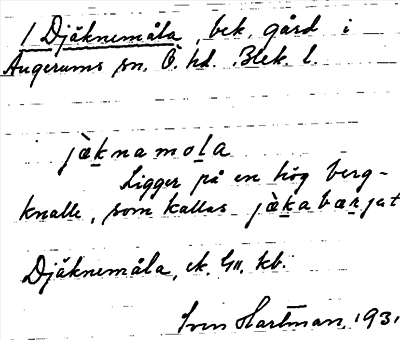 1 Djäknemåla, bek. gård i
Augerums sn. Ö. hd. Blek. l.
jàknamola
Ligger på en hög berg-
knalle, som kallas jàkabærjat
Djäknemåla, ek. G11. kb.
Sven Hartman, 1931